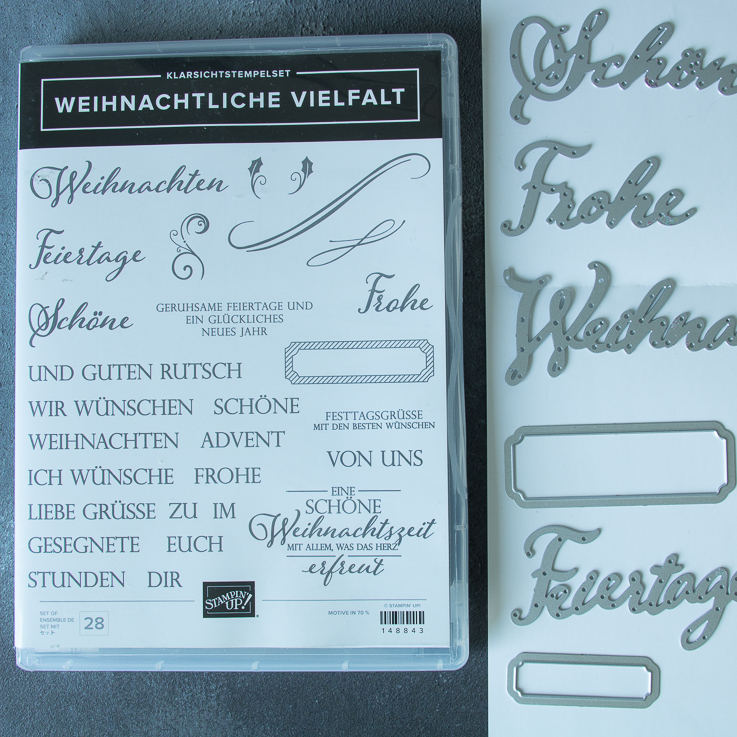 KLARSICHTSTEMPELSET
WEIHNACHTLICHE VIELFALT
Weihnachten
Feiertage
Schöne
GERUHSAME FEIERTAGE UND
EIN GLÜCKLICHES
NEUES JAHR
Frohe
UND GUTEN RUTSCH
WIR WÜNSCHEN SCHÖNE
WEIHNACHTEN ADVENT
ICH WÜNSCHE FROHE
LIEBE GRÜSSE ZU IM
GESEGNETE EUCH
STUNDEN DIR
FESTTAGSGRÜSSE
MIT DEN BESTEN WÜNSCHEN
VON UNS
EINE
SCHÖNE
Weihnachtszeit
MIT ALLEM, WAS DAS HERZ
erfreut
SET OF
ENSEMBLE DE
SET MIT
セット
28
STAMPIN' UP!
MOTIVE IN 70 %
© STAMPIN' UP!
148843
Schön
Frohe
Weihna
Feiertage